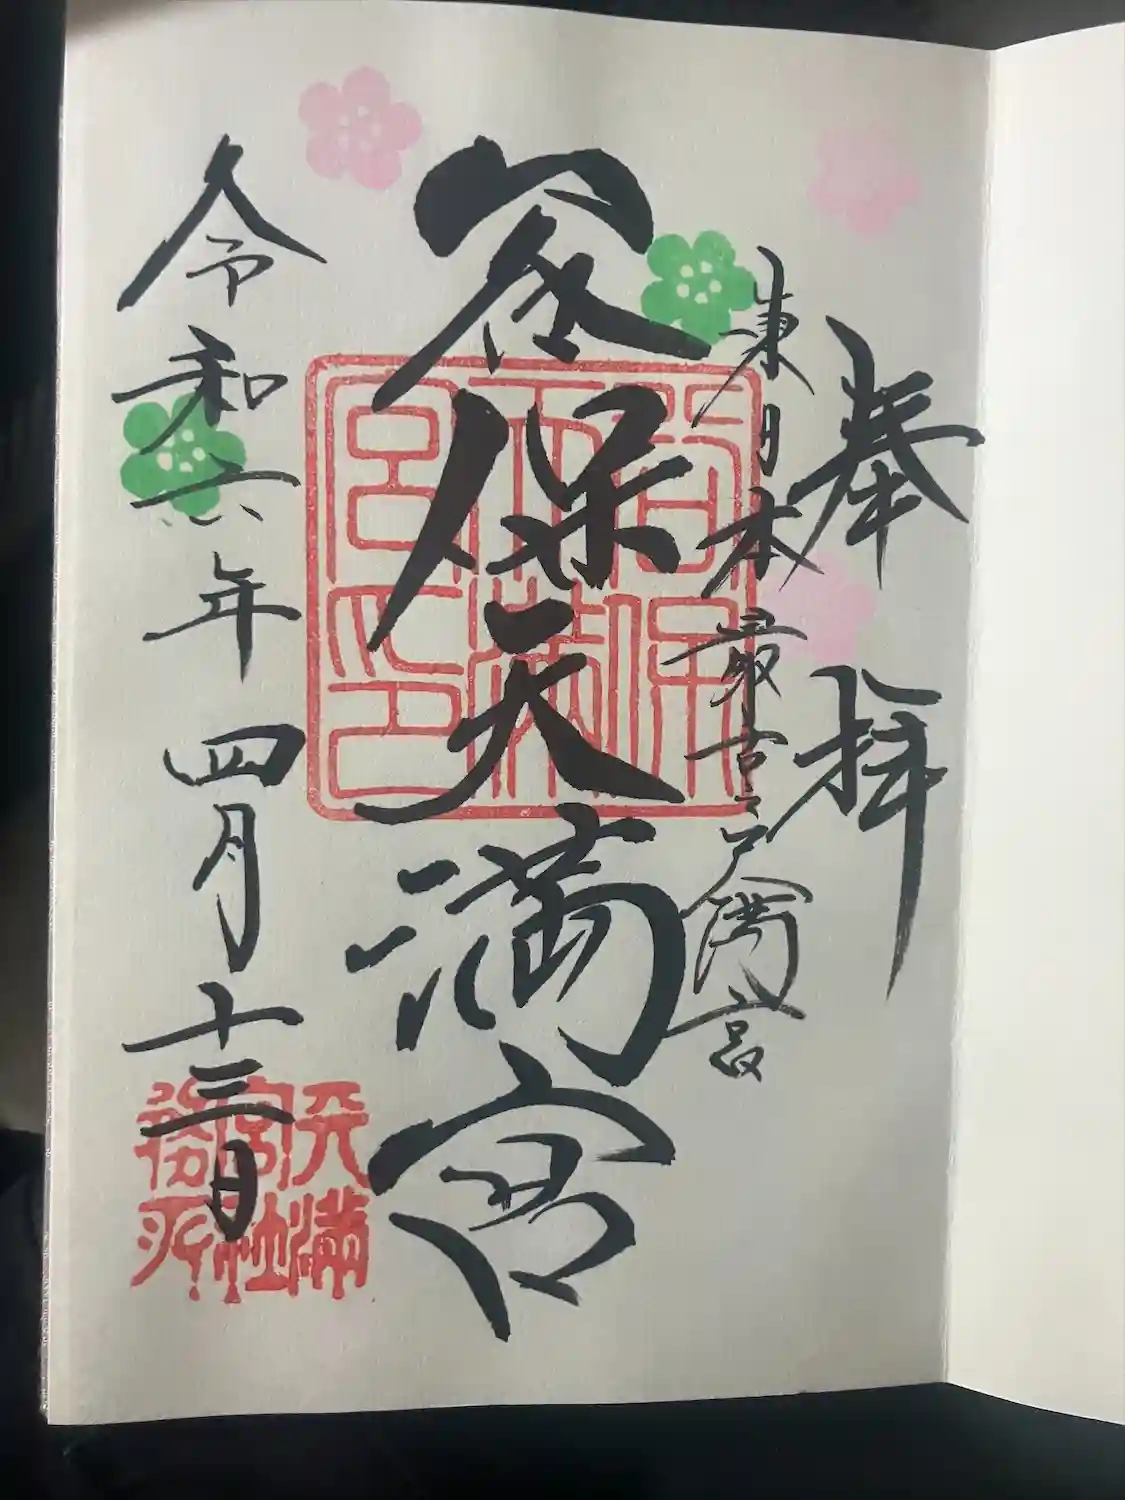 奉拝
東日本最古之天満宮
谷保天満宮
谷保
天満
宮印
令和六年四月十三日
天満
宮社
務所